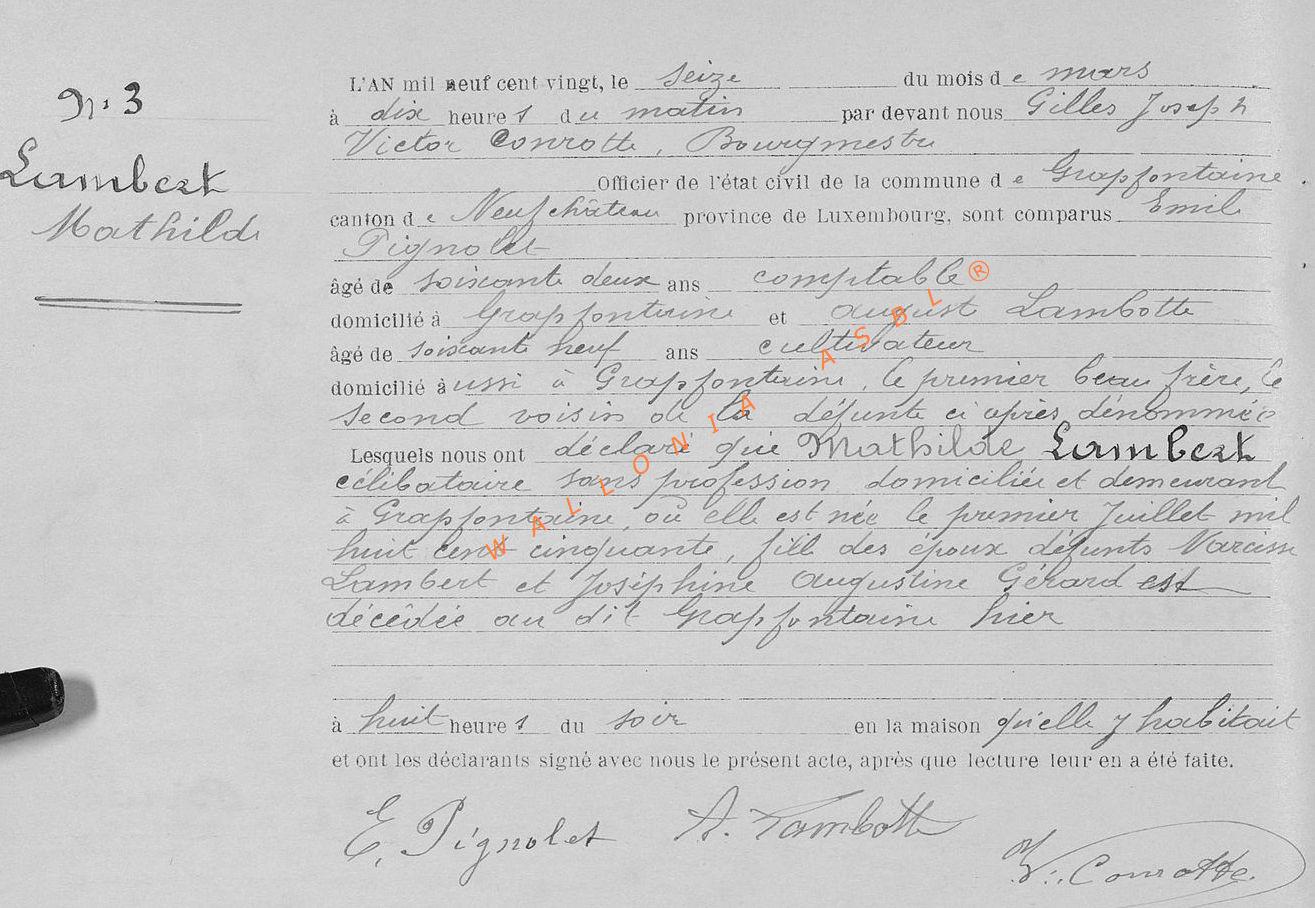 N° 3
Lambert
Mathilde
L'AN mil neuf cent vingt, le seize du mois de mars
à dix heures du matin par devant nous Gilles Joseph
Victor Conrotte, Bourgmestre
Officier de l'état civil de la commune de Grapfontaine
canton de Neufchâteau province de Luxembourg, sont comparus Emile
Pignolet
âgé de soixante deux ans comptable
domicilié à Grapfontaine et August Lambotte
âgé de soixante neuf ans cultivateur
domicilié aussi à Grapfontaine, le premier beau frère, le
second voisin de la défunte ci après dénommée
Lesquels nous ont déclaré que Mathilde Lambert
célibataire sans profession domiciliée et demeurant
à Grapfontaine, où elle est née le premier Juillet mil
huit cent cinquante, fille des époux défunts Narcisse
Lambert et Joséphine Augustine Gérard est
décédée au dit Grapfontaine hier
à huit heures du soir en la maison qu'elle y habitait
et ont les déclarants signé avec nous le présent acte, après que lecture leur en a été faite.
E. Pignolet A. Lambotte
V. Conrotte
WALLONIA ASBL®